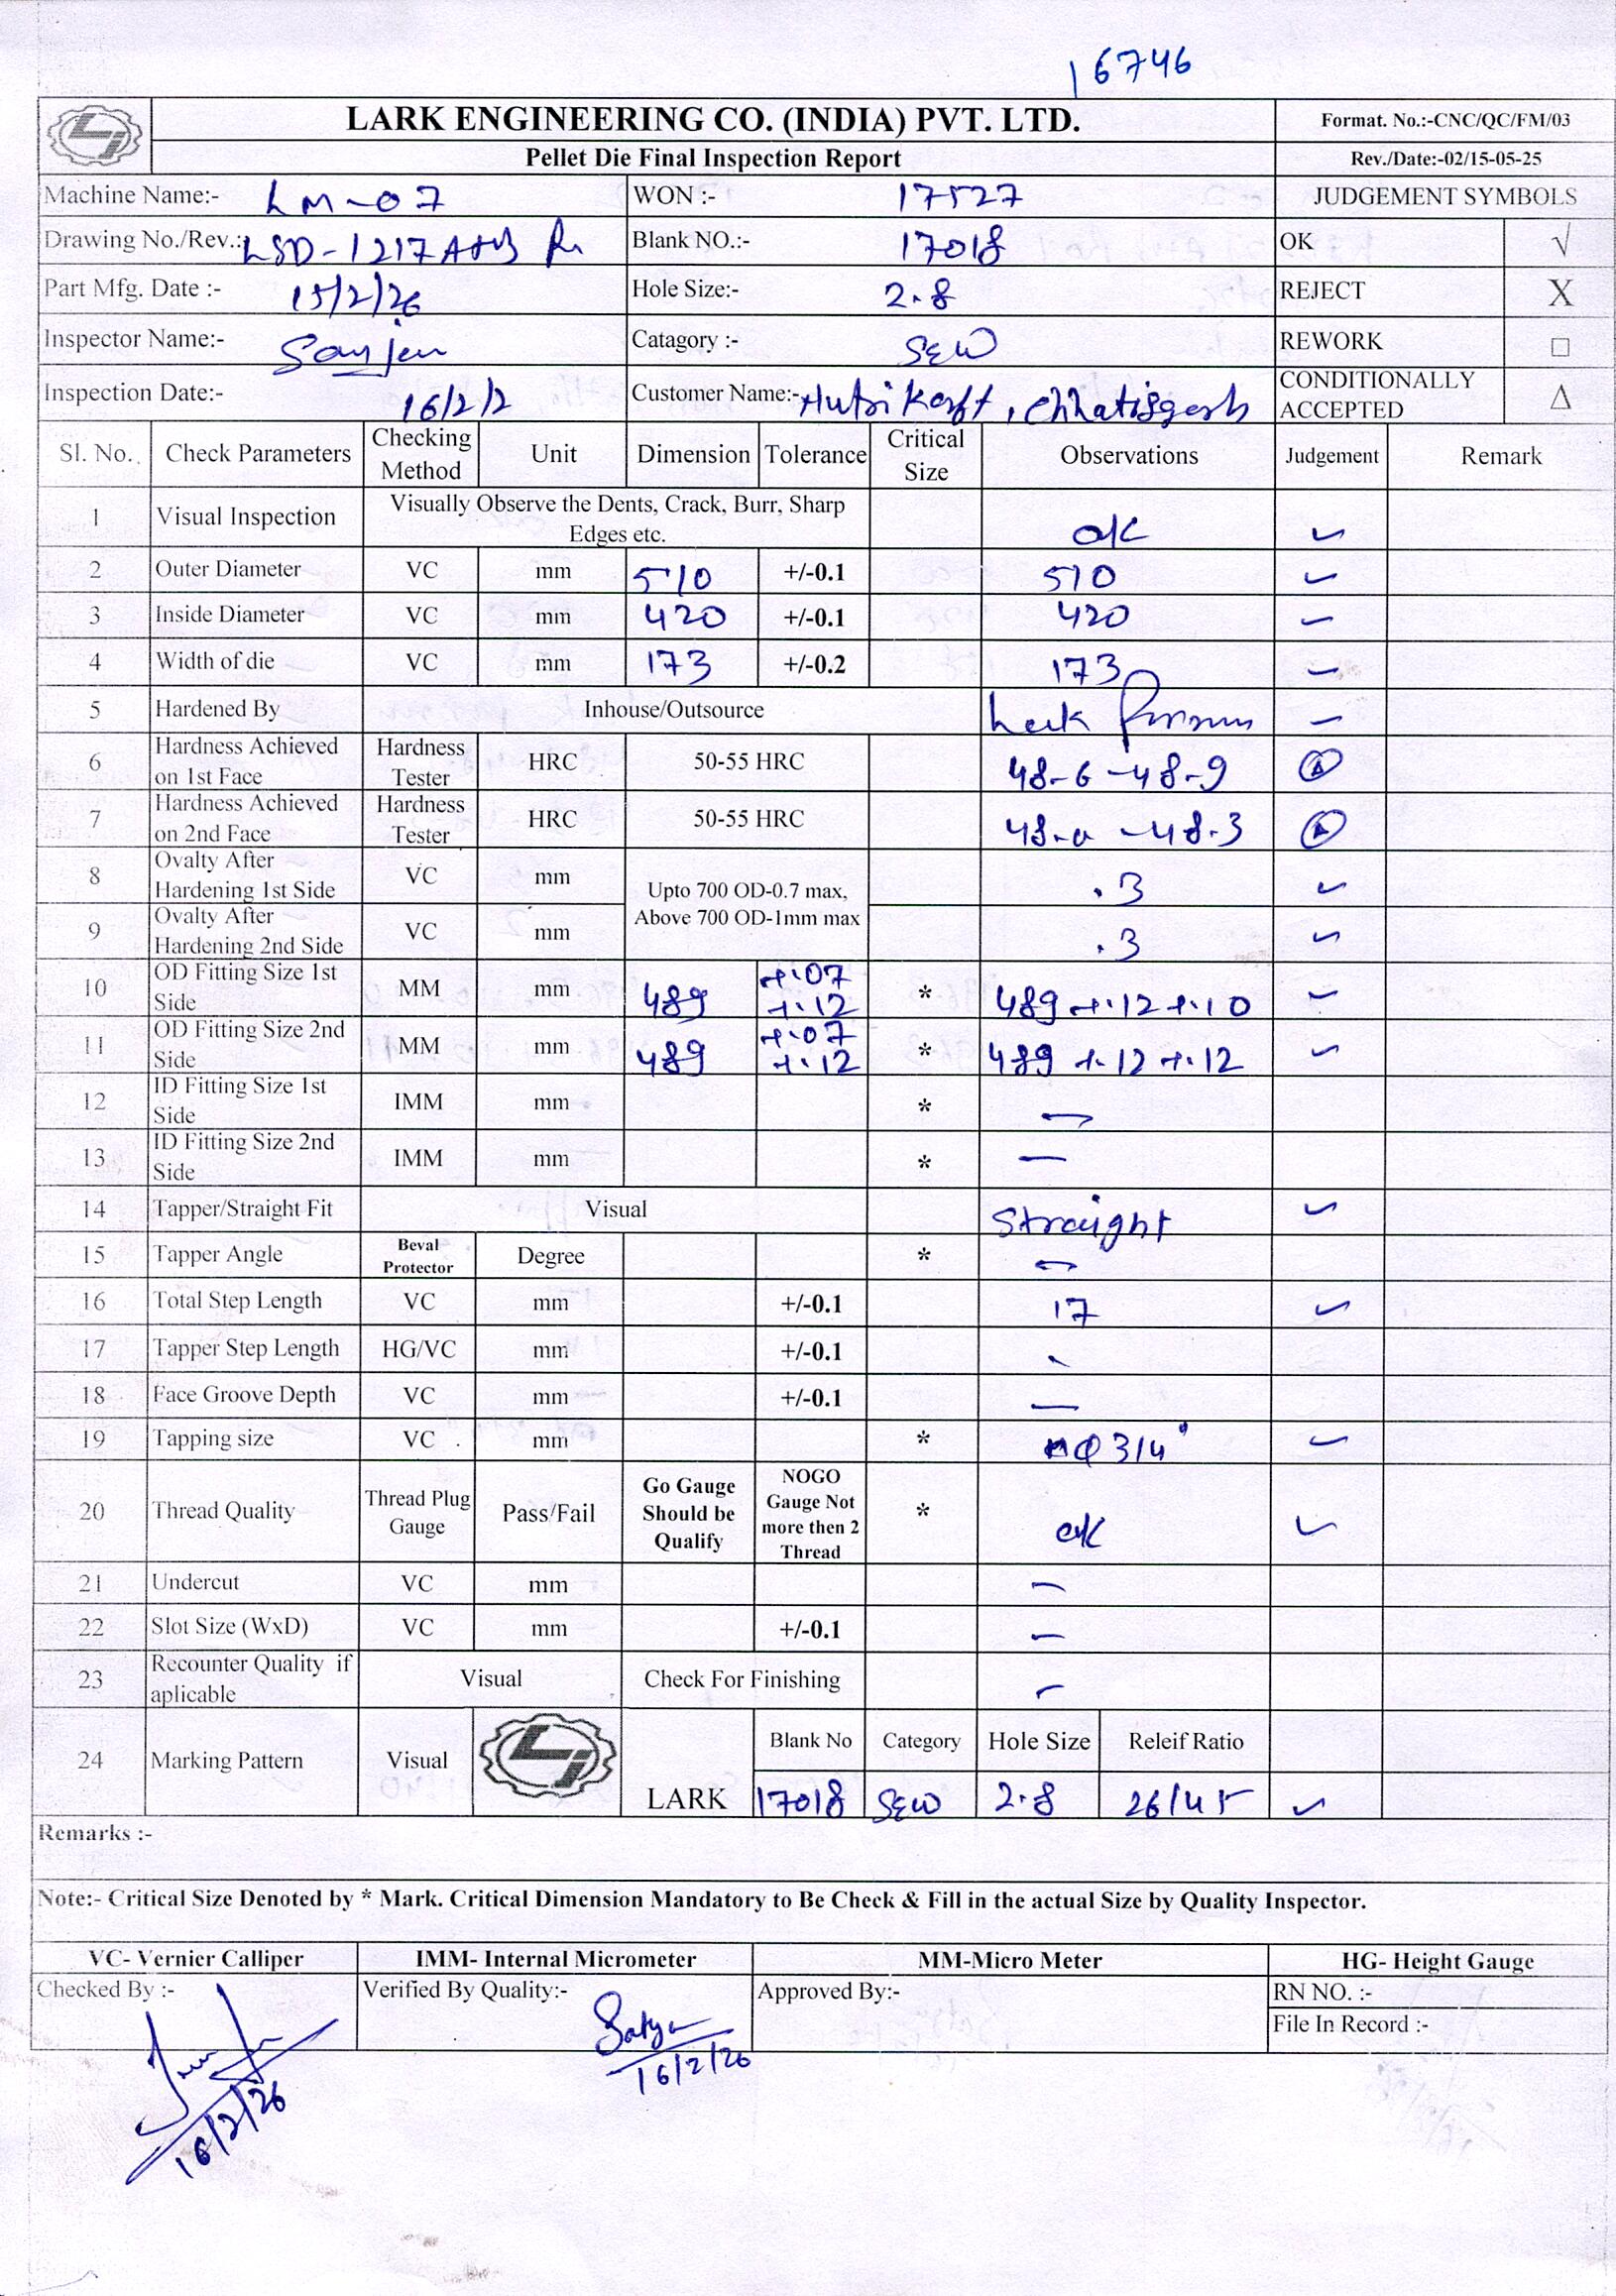 16746
LARK ENGINEERING CO. (INDIA) PVT. LTD.
Format. No.:-CNC/QC/FM/03
Pellet Die Final Inspection Report
Rev./Date:-02/15-05-25
Machine Name:- LM-07 WON :- 17527 JUDGEMENT SYMBOLS
Drawing No./Rev.: LSD-1217 Blank NO.:- 17018 OK √
Part Mfg. Date :- 15/2/26 Hole Size:- 2.8 REJECT X
Inspector Name:- Catagory :- SEW REWORK □
Inspection Date:- 16/2/2 Customer Name:- CONDITIONALLY ACCEPTED Δ
Sl. No. Check Parameters Checking Method Unit Dimension Tolerance Critical Size Observations Judgement Remark
1 Visual Inspection Visually Observe the Dents, Crack, Burr, Sharp Edges etc. ok ✓
2 Outer Diameter VC mm 510 +/-0.1 510 ✓
3 Inside Diameter VC mm 420 +/-0.1 420 ✓
4 Width of die VC mm 173 +/-0.2 173 ✓
5 Hardened By Inhouse/Outsource Lark ✓
6 Hardness Achieved on 1st Face Hardness Tester HRC 50-55 HRC 48-6 -48-9
7 Hardness Achieved on 2nd Face Hardness Tester HRC 50-55 HRC 48-0 -48-3
8 Ovalty After Hardening 1st Side VC mm Upto 700 OD-0.7 max, Above 700 OD-1mm max .3 ✓
9 Ovalty After Hardening 2nd Side VC mm .3 ✓
10 OD Fitting Size 1st Side MM mm 489 +.07 +.12 * 489 +.12 +.10 ✓
11 OD Fitting Size 2nd Side MM mm 489 +.07 +.12 * 489 +.12 +.12 ✓
12 ID Fitting Size 1st Side IMM mm * —
13 ID Fitting Size 2nd Side IMM mm * —
14 Tapper/Straight Fit Visual Straight ✓
15 Tapper Angle Beval Protector Degree * —
16 Total Step Length VC mm +/-0.1 17 ✓
17 Tapper Step Length HG/VC mm +/-0.1 -
18 Face Groove Depth VC mm +/-0.1 —
19 Tapping size VC mm * 3/4" ✓
20 Thread Quality Thread Plug Gauge Pass/Fail Go Gauge Should be Qualify NOGO Gauge Not more then 2 Thread * ok ✓
21 Undercut VC mm —
22 Slot Size (WxD) VC mm +/-0.1 —
23 Recounter Quality if aplicable Visual Check For Finishing —
24 Marking Pattern Visual LARK Blank No Category Hole Size Releif Ratio
17018 SEW 2.8 26/45 ✓
Remarks :-
Note:- Critical Size Denoted by * Mark. Critical Dimension Mandatory to Be Check & Fill in the actual Size by Quality Inspector.
VC- Vernier Calliper IMM- Internal Micrometer MM-Micro Meter HG- Height Gauge
Checked By :- Verified By Quality:- Satya Approved By:- RN NO. :-
File In Record :-
16/2/26
16/2/26